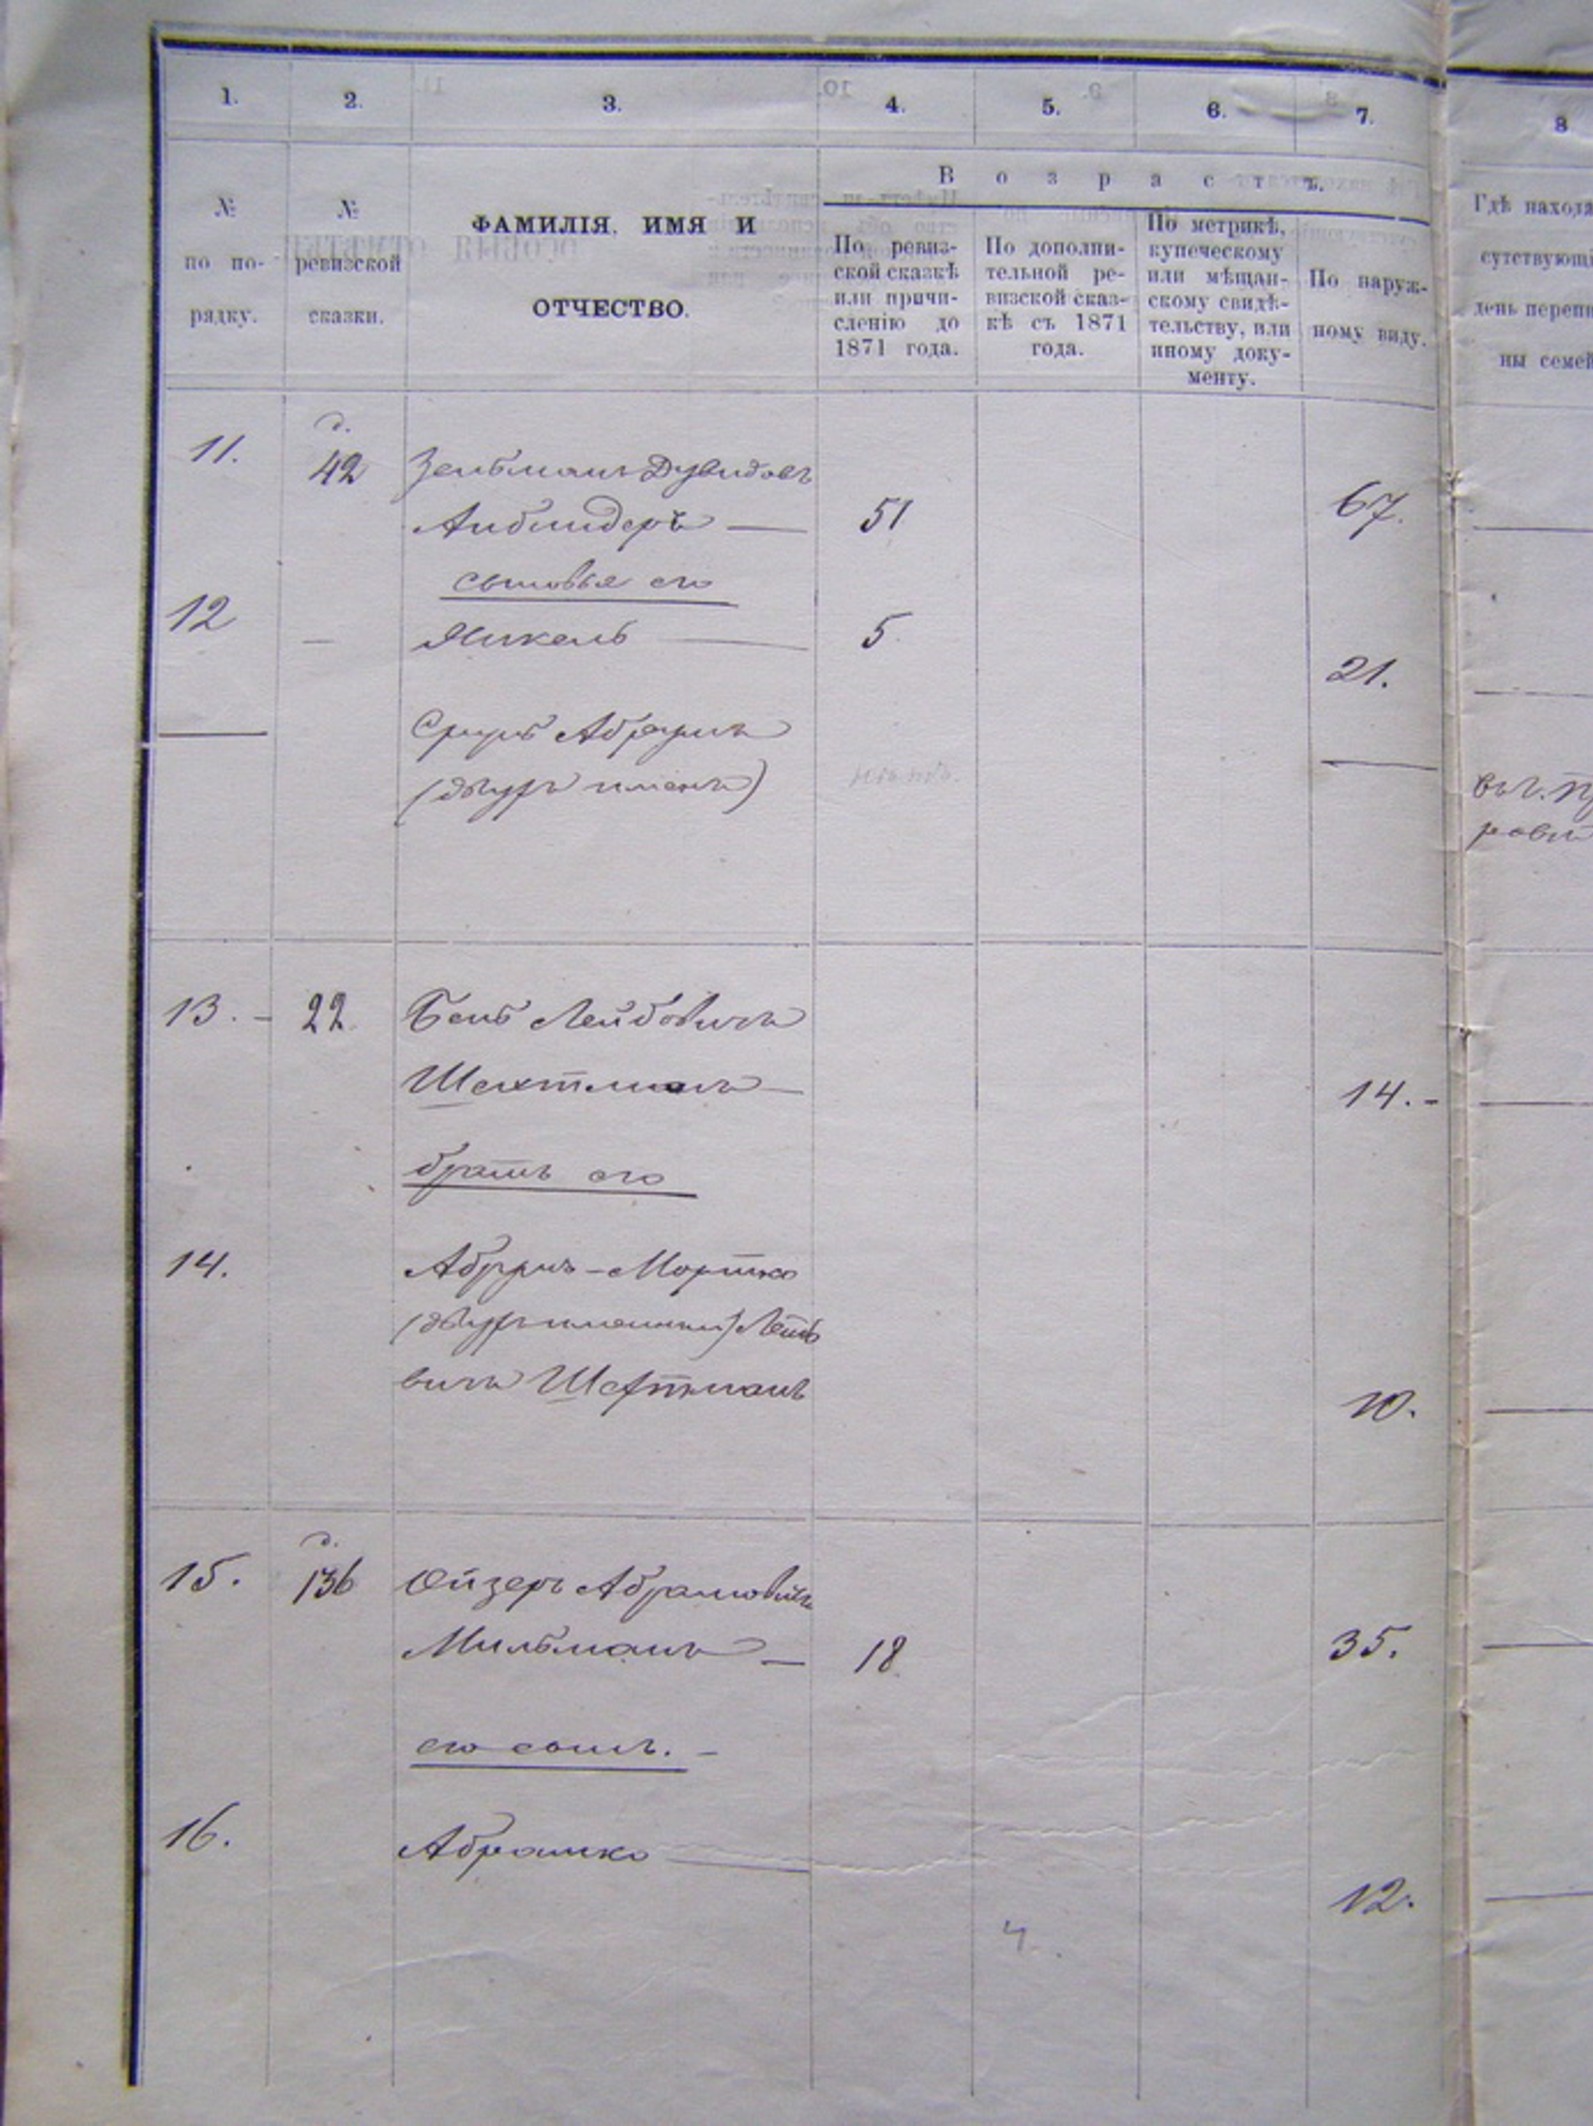 1. 2. 3. 4. 5. 6. 7. 8
В о з р а с т ъ.
№ по по-рядку.
№ ревизской сказки.
ФАМИЛІЯ, ИМЯ И
ОТЧЕСТВО.
По ревиз-
ской сказкѣ
или причи-
сленію до
1871 года.
По дополни-
тельной ре-
визской сказ-
кѣ съ 1871
года.
По метрикѣ,
купеческому
или мѣщан-
скому свидѣ-
тельству, или
иному доку-
менту.
По наруж-
ному виду.
Гдѣ находя
сутствующі
день перепи
ны семей
11. 42 Зельманъ Дувидовъ
Анбиндеръ — 51 67.
сыновья его
12 — Янкель — 5 21.
Сруль Абрумъ
(двухъ именъ)
13. - 22 Бень Лейбовичъ
Шехтманъ — 14. -
братъ его
14. Абрумъ - Мортко
(двухъименный) Лейбо
вичъ Шехтманъ 10.
15. 136 Ойзеръ Абрамовичъ
Мильманъ — 18 35.
его сынъ. -
16. Абрамко — 12.
4.